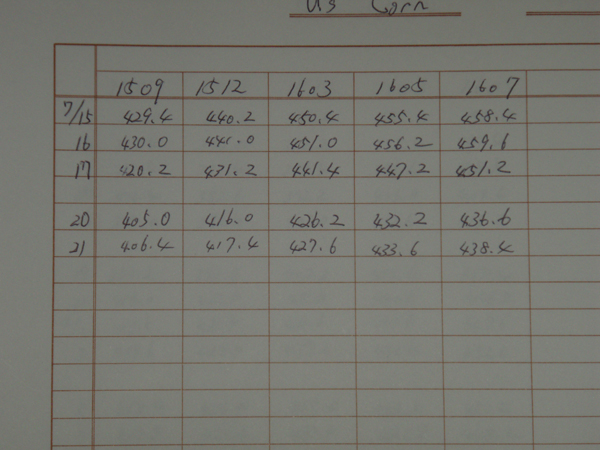 US Corn
1509 1512 1603 1605 1607
7/15 429.4 440.2 450.4 455.4 458.4
16 430.0 441.0 451.0 456.2 459.6
17 420.2 431.2 441.4 447.2 451.2
20 405.0 416.0 426.2 432.2 436.6
21 406.4 417.4 427.6 433.6 438.4